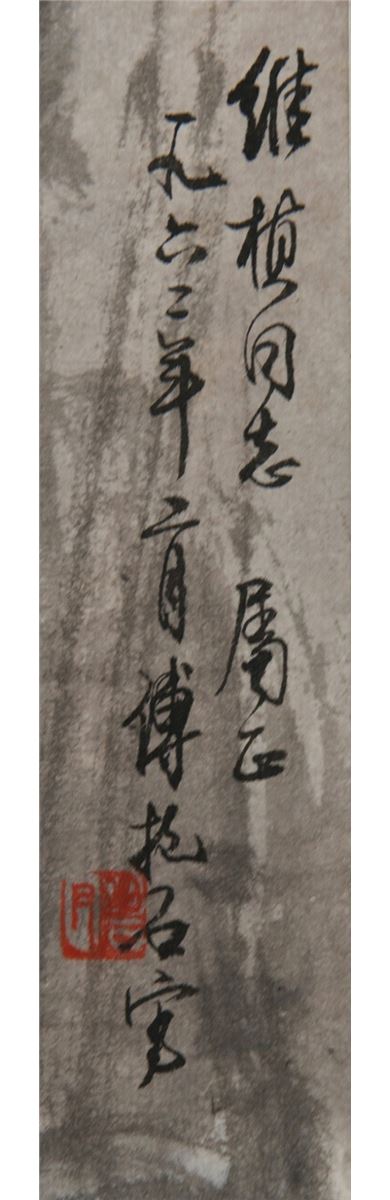 維楨同志 属正
一九六二年二月傅抱石寫